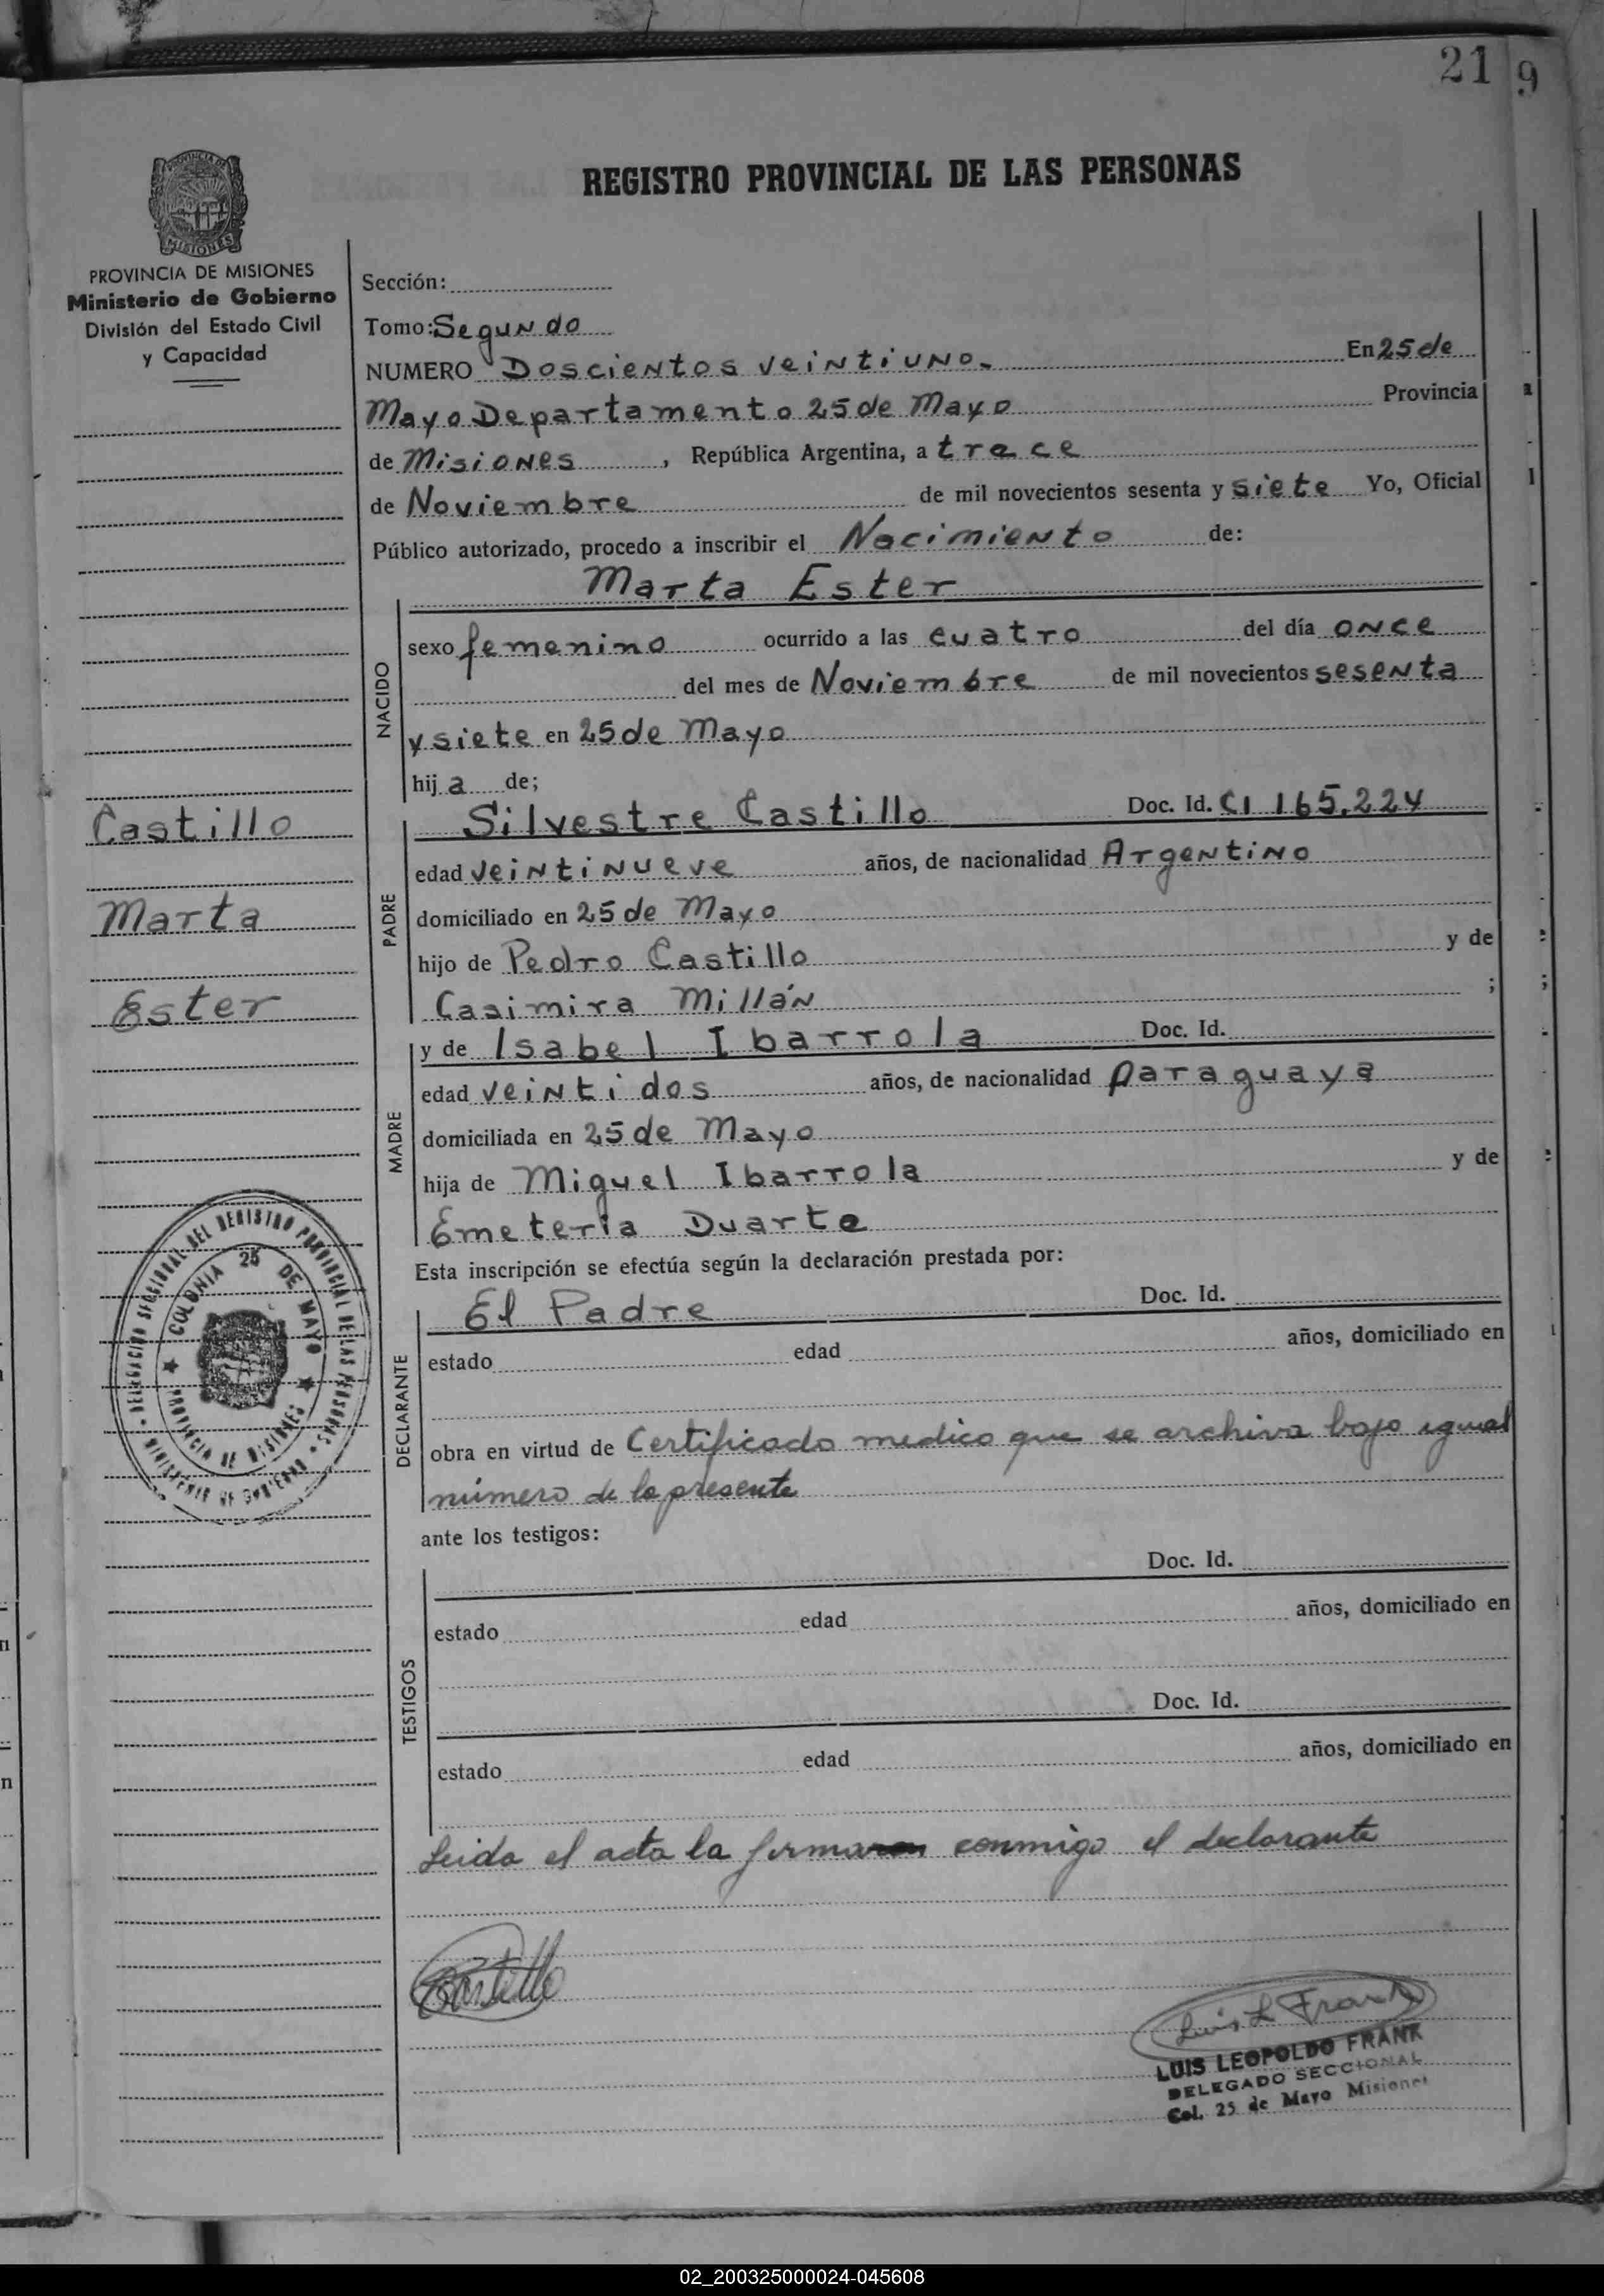 21 9
REGISTRO PROVINCIAL DE LAS PERSONAS
PROVINCIA DE
MISIONES
PROVINCIA DE MISIONES
Ministerio de Gobierno
División del Estado Civil
y Capacidad
Castillo
Marta
Ester
DELEGACION SECCIONAL DEL REGISTRO PROVINCIAL DE LAS PERSONAS
MINISTERIO DE GOBIERNO
COLONIA 25 DE MAYO
PROVINCIA DE MISIONES
Sección:
Tomo: Segundo
NUMERO Doscientos veintiuno.- En 25 de
Mayo Departamento 25 de Mayo Provincia
de Misiones, República Argentina, a trece
de Noviembre de mil novecientos sesenta y siete Yo, Oficial
Público autorizado, procedo a inscribir el Nacimiento de:
Marta Ester
NACIDO
sexo femenino ocurrido a las cuatro del día once
del mes de Noviembre de mil novecientos sesenta
y siete en 25 de Mayo
hija de;
PADRE
Silvestre Castillo Doc. Id. CI 165.224
edad veintinueve años, de nacionalidad Argentino
domiciliado en 25 de Mayo
hijo de Pedro Castillo y de
Casimira Millán ;
MADRE
y de Isabel Ibarrola Doc. Id.
edad veinti dos años, de nacionalidad paraguaya
domiciliada en 25 de Mayo
hija de Miguel Ibarrola y de
Emeteria Duarte
Esta inscripción se efectúa según la declaración prestada por:
DECLARANTE
El Padre Doc. Id.
estado edad años, domiciliado en
obra en virtud de Certificado medico que se archiva bajo igual
número de la presente
ante los testigos:
TESTIGOS
Doc. Id.
estado edad años, domiciliado en
Doc. Id.
estado edad años, domiciliado en
Leida el acta la firma conmigo el declarante
Castillo
Luis L Frank
LUIS LEOPOLDO FRANK
DELEGADO SECCIONAL
Col. 25 de Mayo Misiones
02_200325000024-045608